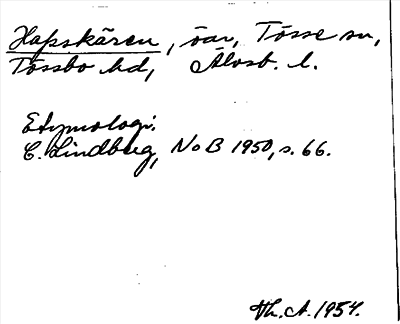 Hapskären, öar, Tösse sn,
Tössbo hd, Älvsb. l.
Etymologi.
C. Lindberg, NoB 1950, s. 66.
Th. A. 1954.